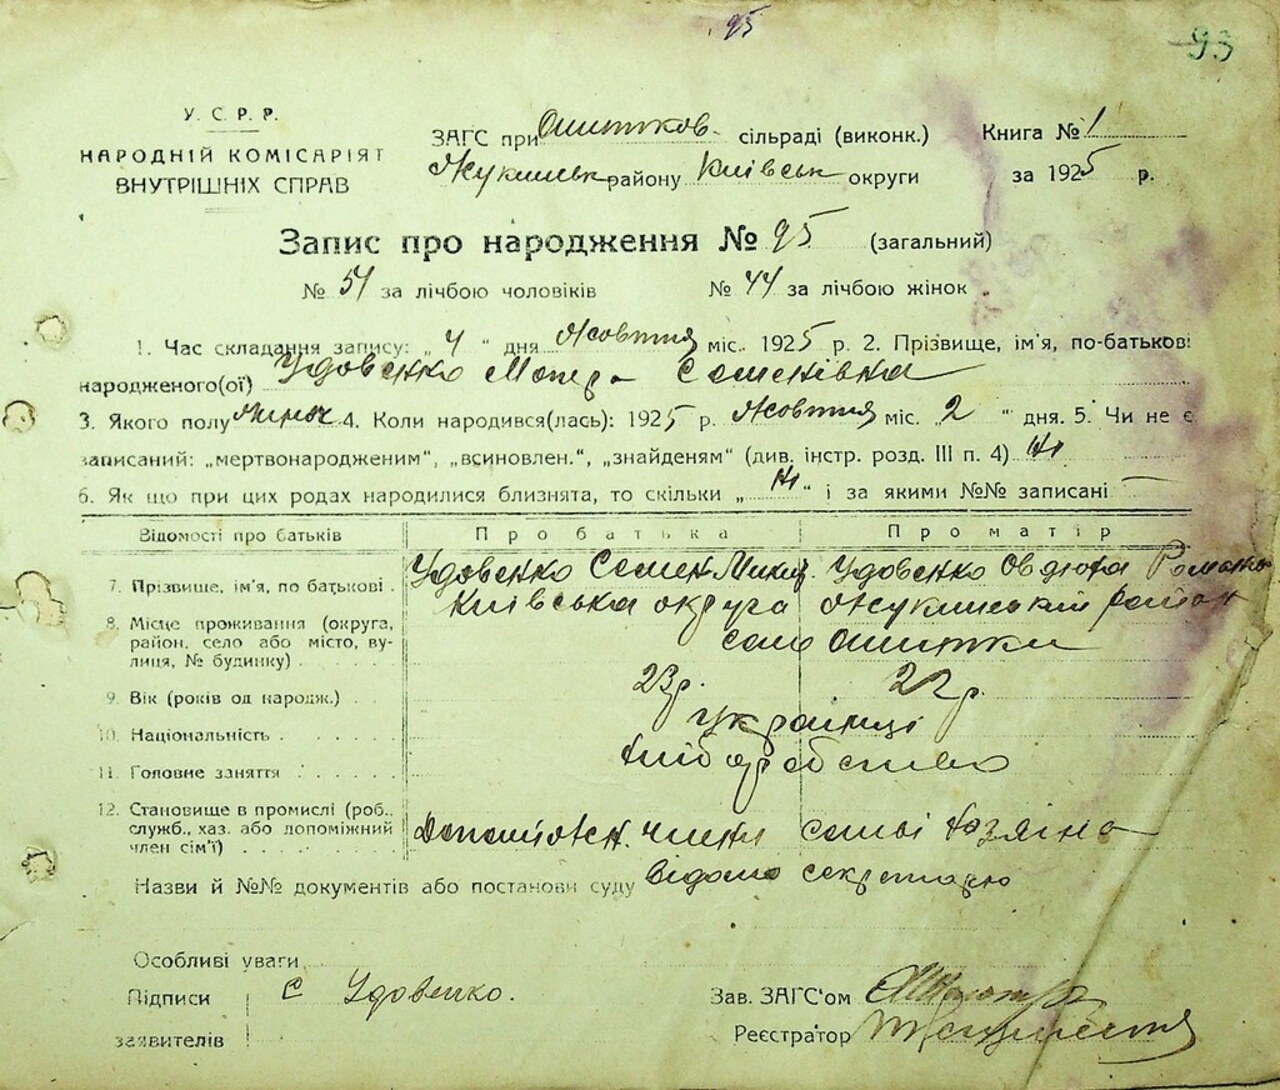 95
93
У. С. Р. Р.
НАРОДНІЙ КОМІСАРІЯТ
ВНУТРІШНІХ СПРАВ
ЗАГС при Ошитков. сільраді (виконк.) Книга № 1
Жукинськ району Київськ округи за 1925 р.
Запис про народження № 95 (загальний)
№ 51 за лічбою чоловіків № 44 за лічбою жінок
1. Час складання запису: „ 4 “ дня Жовтня міс. 1925 р. 2. Прізвище, ім'я, по-батькові
народженого(ої) Удовенко Семенівна
3. Якого полу жіноч 4. Коли народився(лась): 1925 р. Жовтня міс. „ 2 “ дня. 5. Чи не є
записаний: „мертвонародженим“, „всиновлен.“, „знайденям“ (див. інстр. розд. III п. 4) Ні
6. Як що при цих родах народилися близнята, то скільки „ Ні “ і за якими №№ записані —
Відомості про батьків Про батька Про матір
7. Прізвище, ім'я, по батькові . Удовенко Семен Микит. Удовенко Овдюха Романів
8. Місце проживання (округа, район, село або місто, вулиця, № будинку) . . . . Київська округа Жукинський район
село Ошитки
9. Вік (років од народж.) . . 23 р. 22 р.
10. Національність . . . . . Українці
11. Головне заняття . . . . . хліборобство
12. Становище в промислі (роб., служб., хаз. або допоміжний член сім'ї) . . . . Допоміжн. члени сімьі хозяіна
Назви й №№ документів або постанови суду Відомо секретарю
Особливі уваги
Підписи С Удовенко. Зав. ЗАГС'ом
заявителів Реєстратор